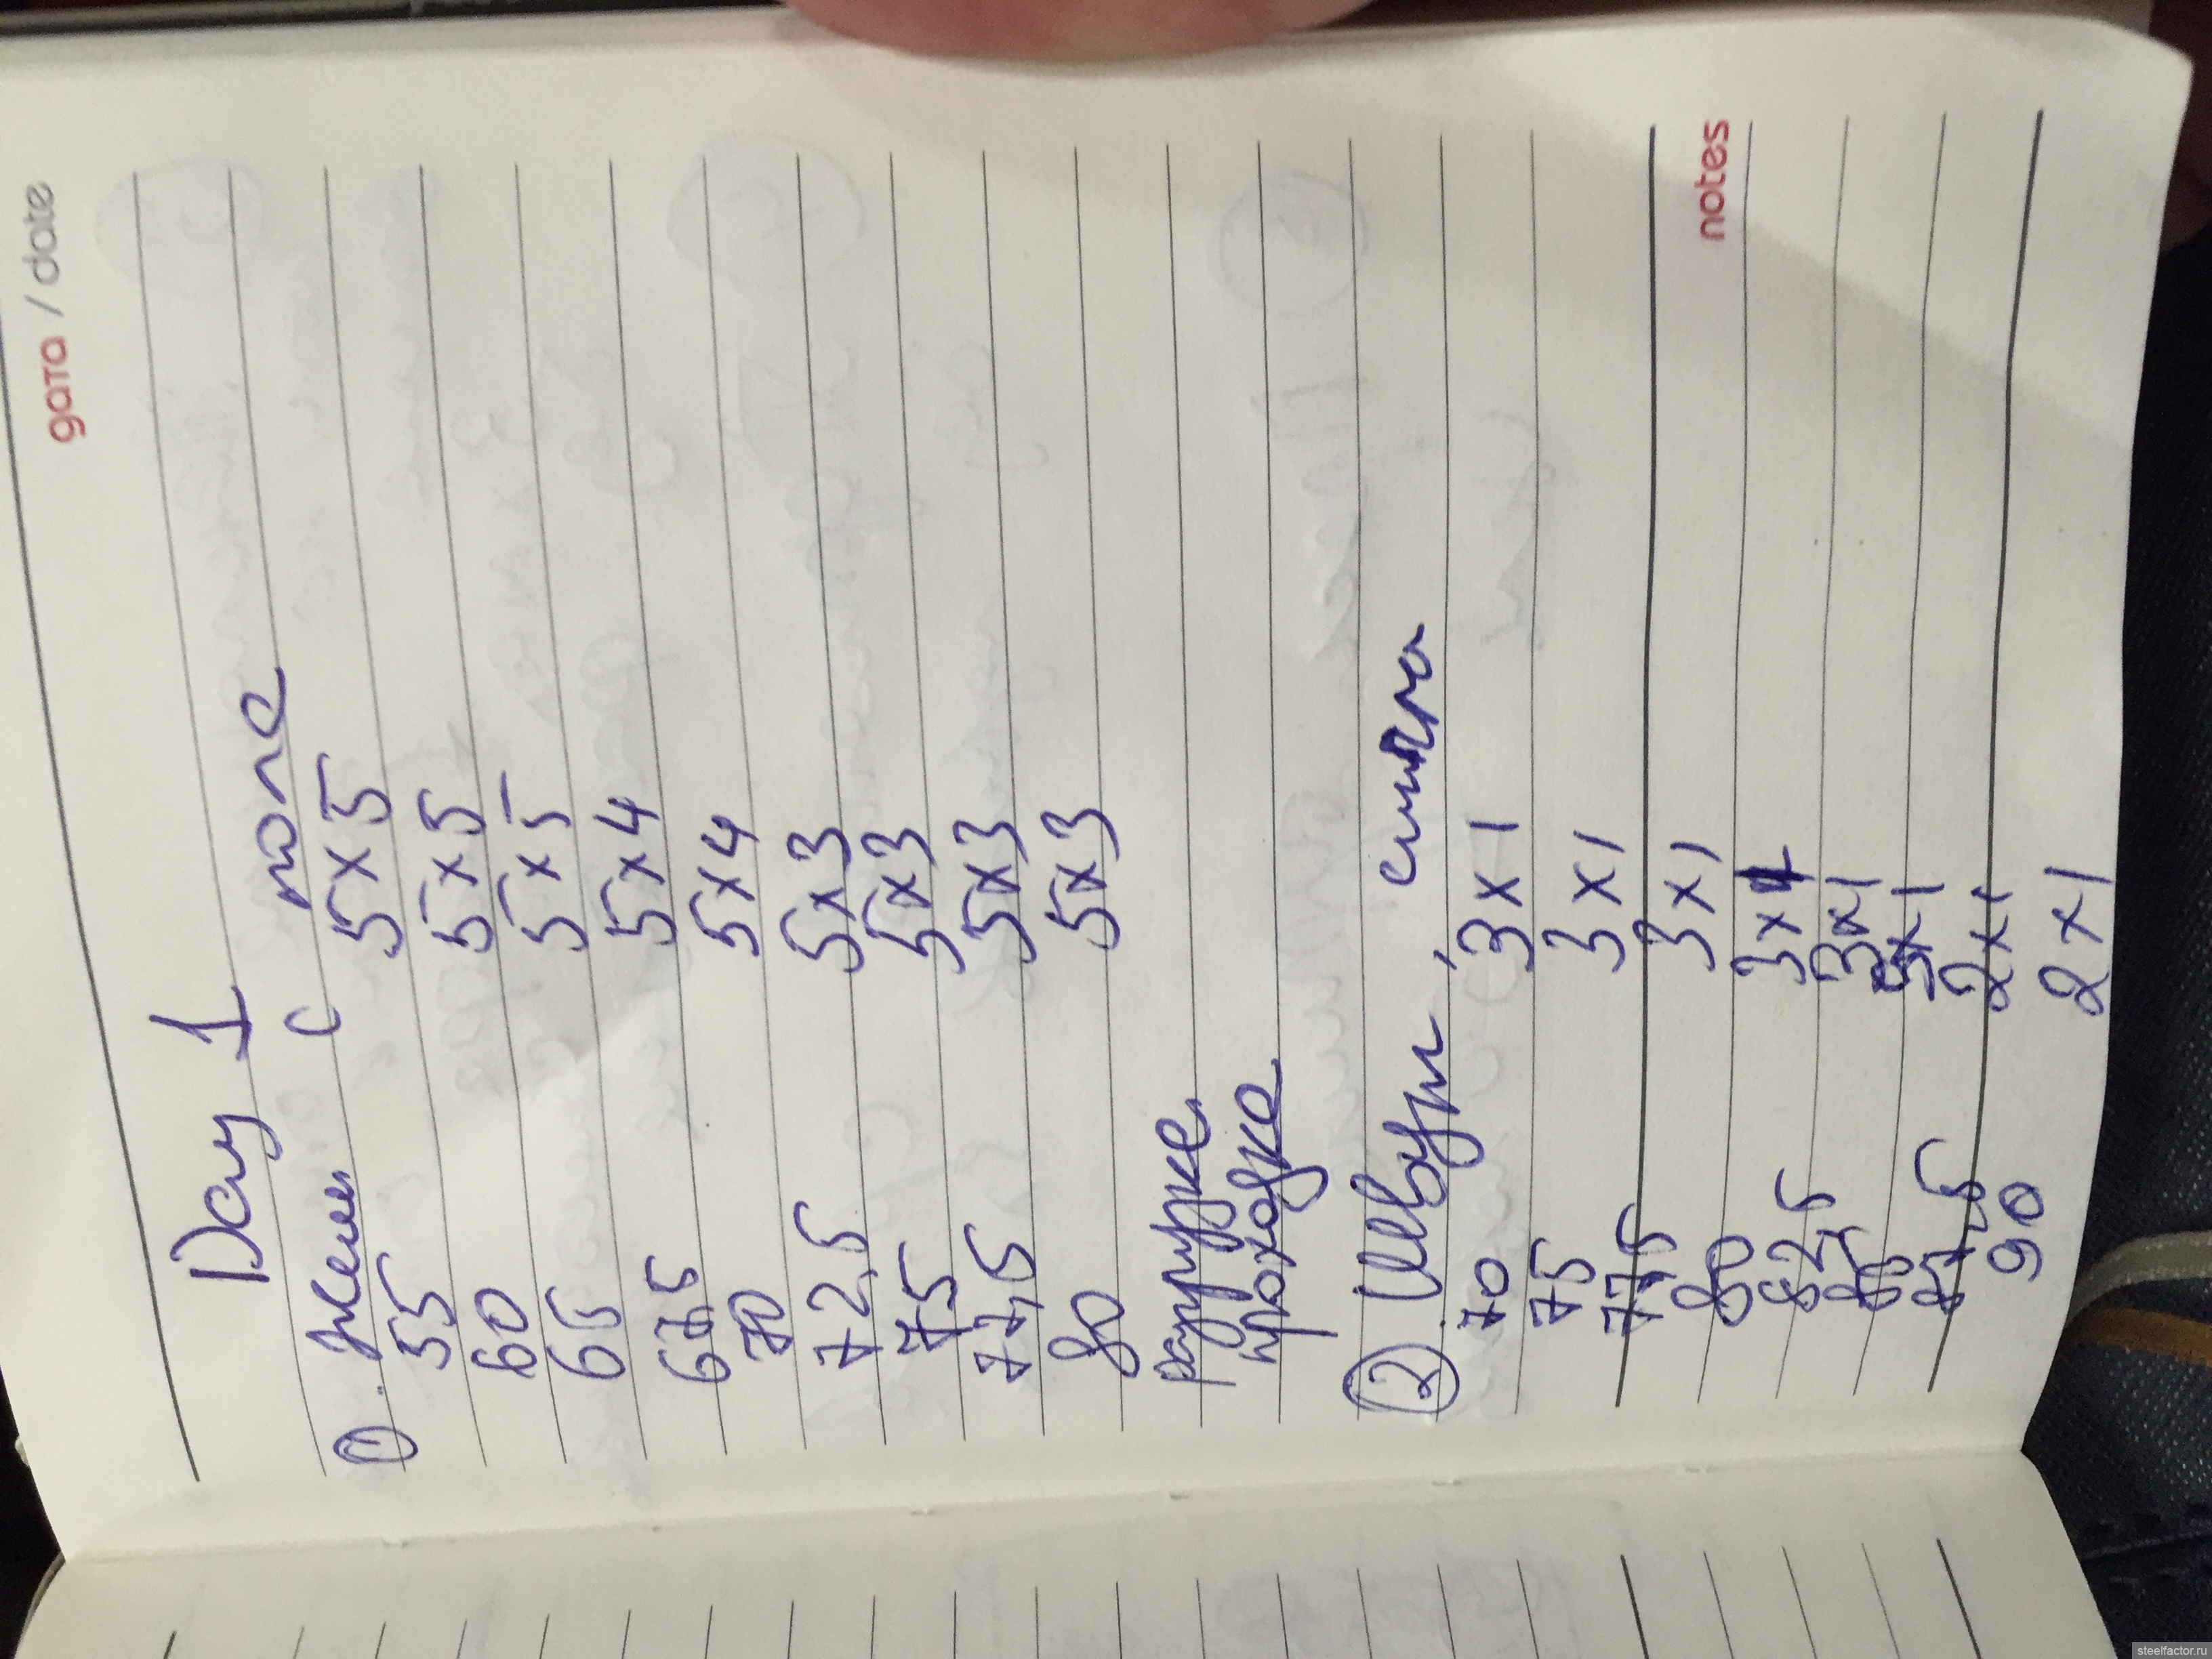 дата / date
Day 1
① жим с
55 5x5
60 5x5
65 5x5
67,5 5x4
70 5x4
72,5 5x3
75 5x3
77,5 5x3
80 5x3
проходке
② Швунг,
70 3x1
75 3x1
77,5 3x1
notes
80 3x1
82,5 3x1
85 3x1
87,5 2x1
90 2x1
steelfactor.ru